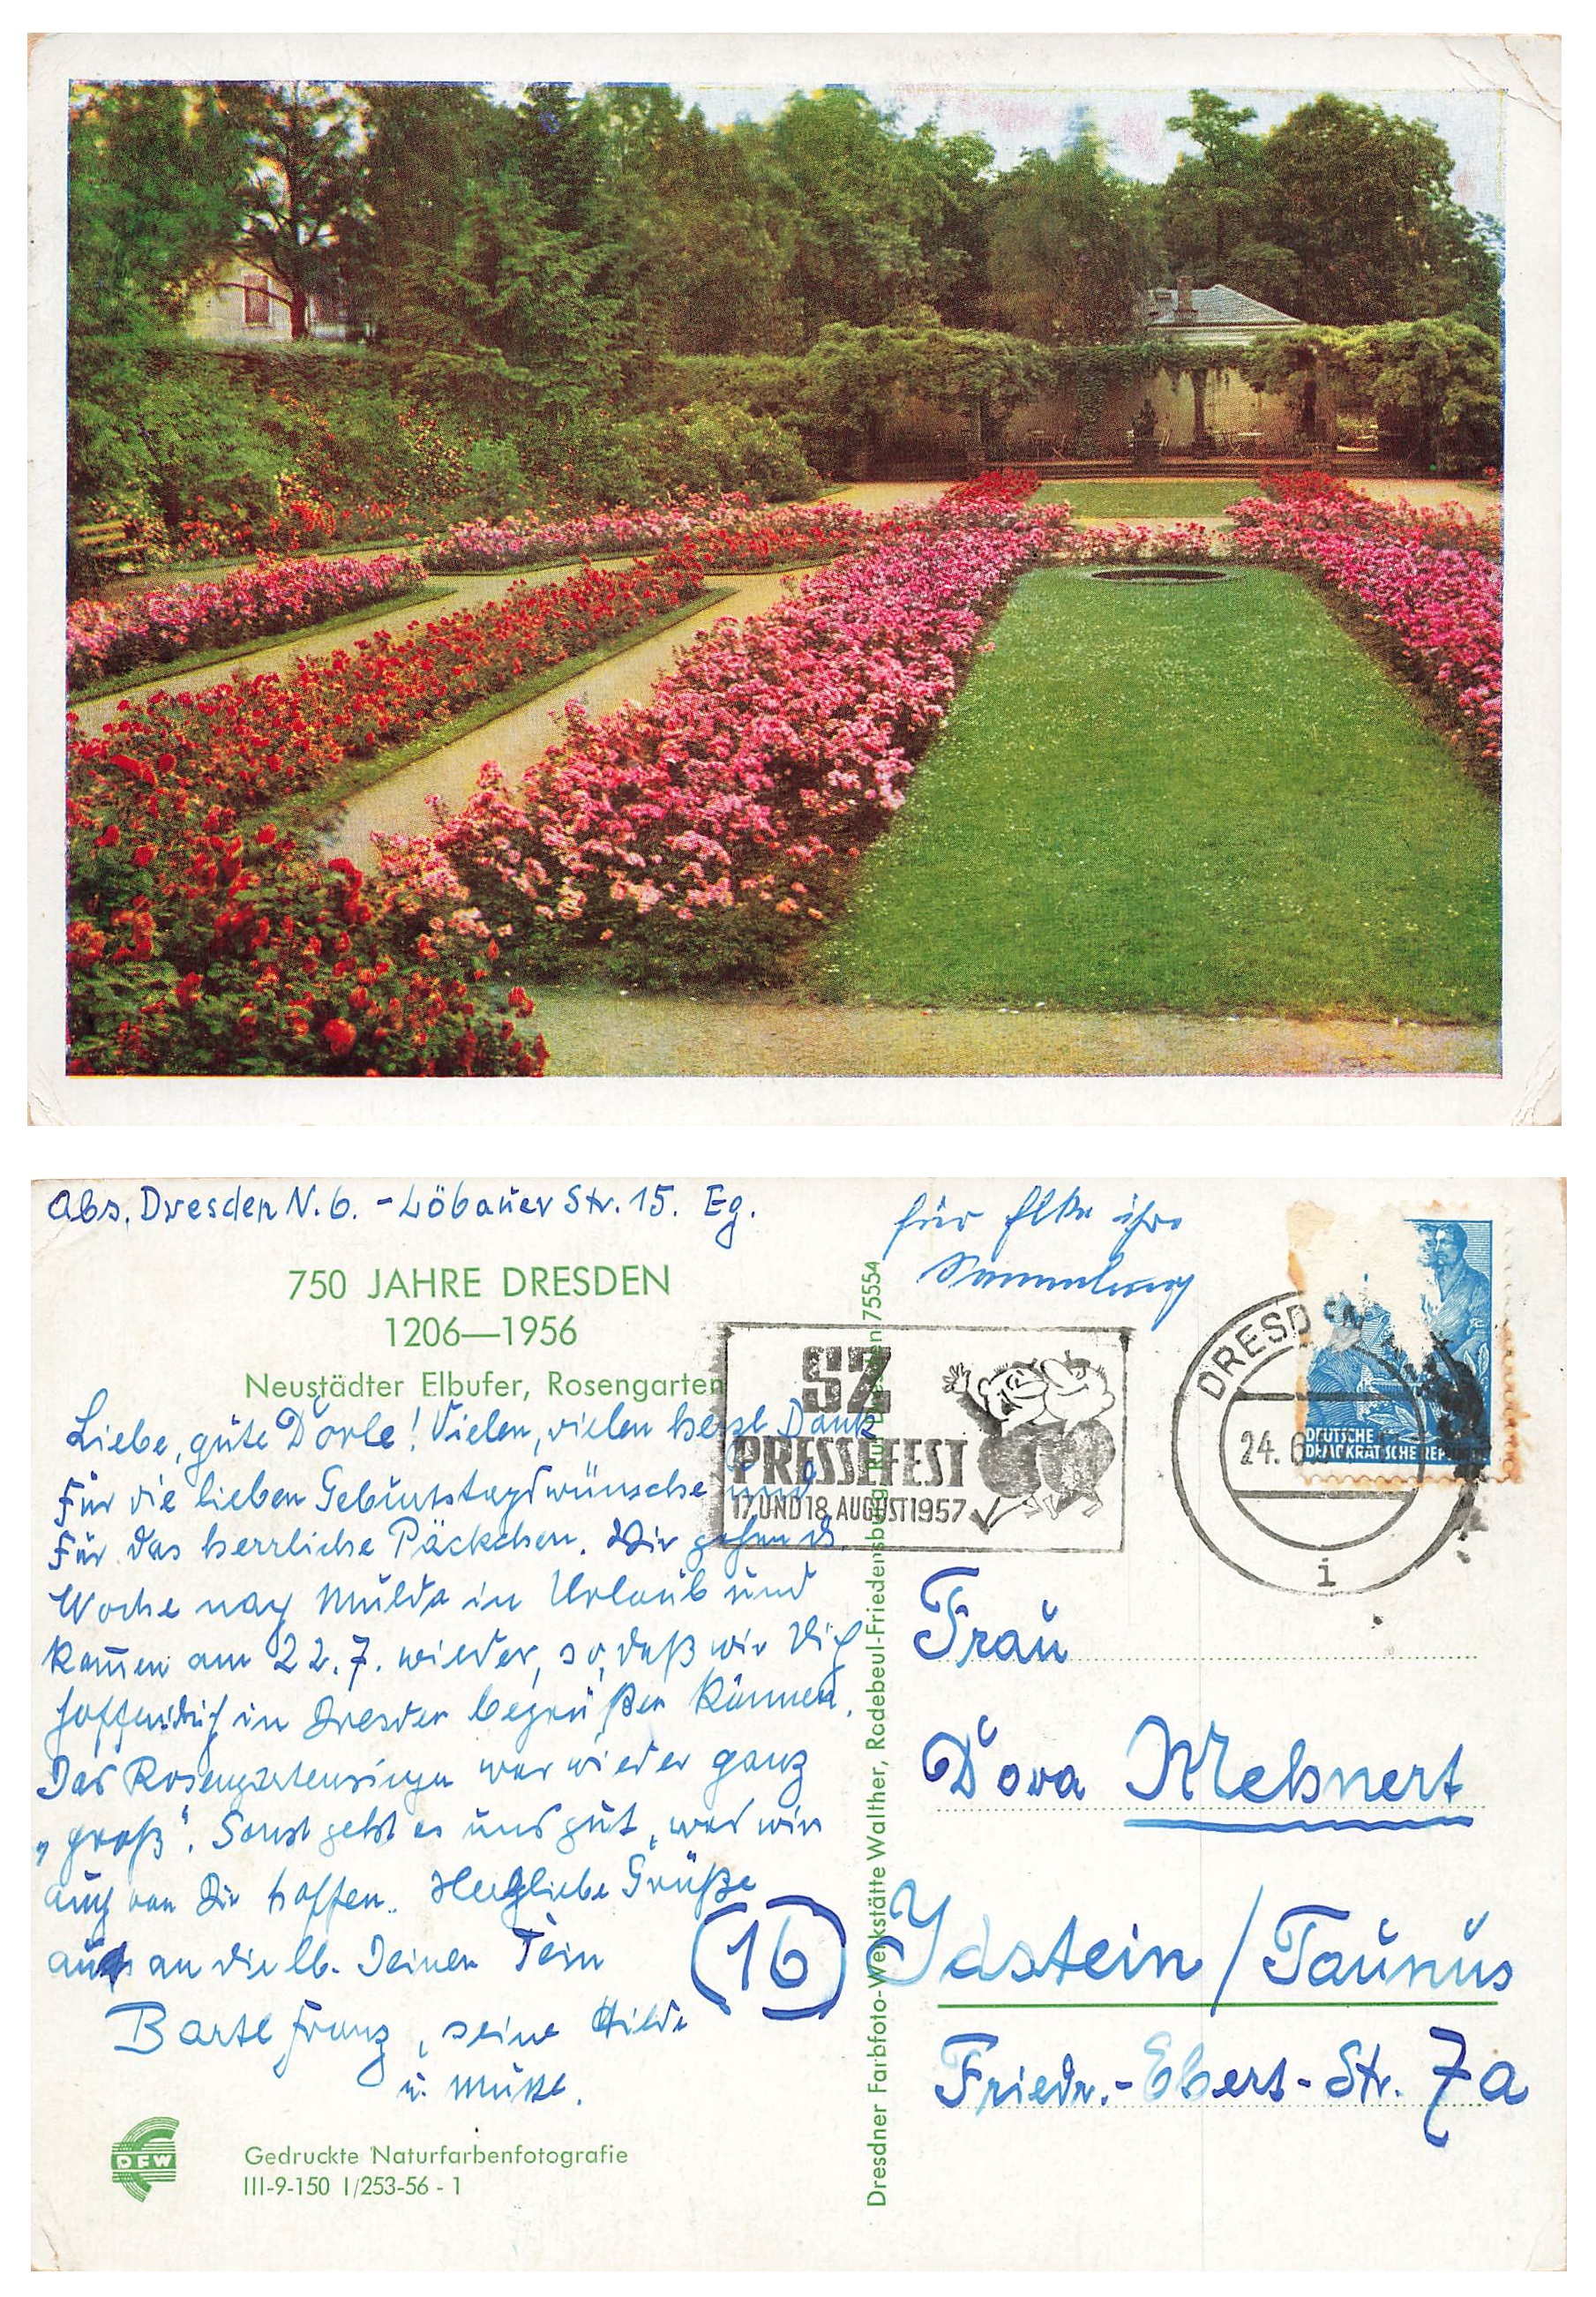 Abs. Dresden N. 6. - Löbauer Str. 15. Eg.
für Elke ihre
Sammlung
750 JAHRE DRESDEN
1206—1956
Neustädter Elbufer, Rosengarten
Liebe, gute Dorle! Vielen, vielen herzl. Dank
für die lieben Geburtstagswünsche und
für das herrliche Päckchen. Wir gehen d.
Woche nach Mulda in Urlaub und
kom̅en am 22.7. wieder, so, daß wir Dich
hoffentlich in Dresden begrüßen können.
Das Rosengartensingen war wieder ganz
„groß". Sonst geht es uns gut, was wir
auch von Dir hoffen. Herzliche Grüße
auch an die lb. Deinen
Bartl Franz, seine Hilde
u.
DFW
Gedruckte Naturfarbenfotografie
III-9-150 I/253-56 - 1
Dresdner Farbfoto-Werkstätte Walther, Radebeul-Friedensburg Ruf Dresden 75554
SZ
PRESSEFEST
17. UND 18. AUGUST 1957
DRESDEN
24. 6
i
DEUTSCHE
DEMOKRATISCHE REPUBLIK
Frau
Dora Mehnert
(16) Idstein / Taunus
Friedr.-Ebert-Str. 7a